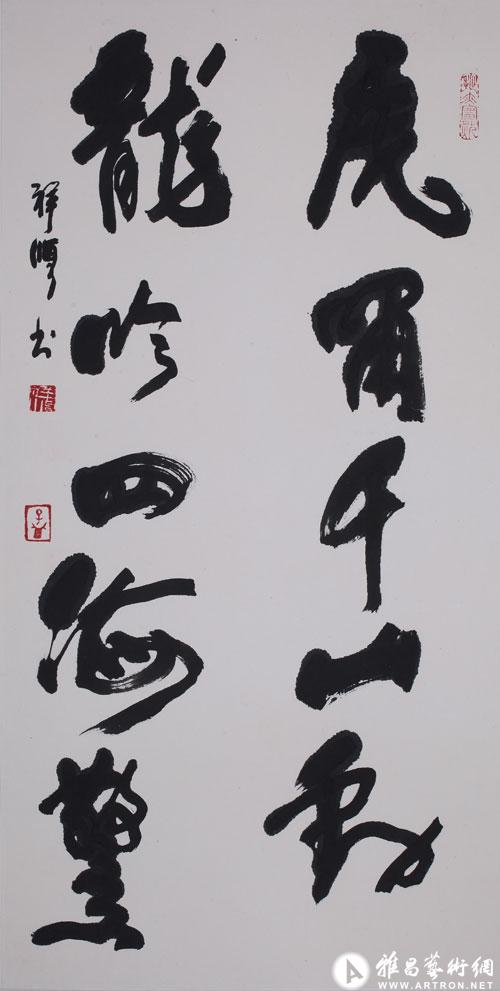 虎啸千山動
龍吟四海驚
祥順书
雅昌藝術網
WWW.ARTRON.NET